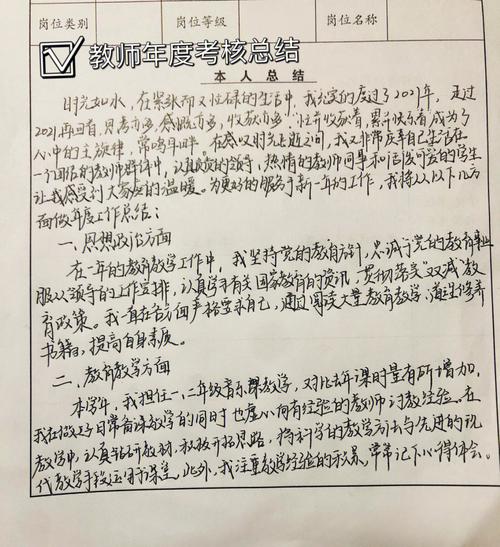 岗位类别 岗位等级 岗位名称
教师年度考核总结
本人总结
时光如水,在紧张而又忙碌的生活中,我充实的度过了2021年,走过
2021再回首,思考亦多,感慨亦多,收获亦多。忙并收获着,累并快乐着成为了
心中的主旋律,常鸣耳畔。在感叹时光飞逝之间,我又非常庆幸自己生活在
一个团结的教师群体中,认真负责的领导,热情的教师同事和活泼可爱的学生
让我感受到大家庭的温暖。为更好的服务于新一年的工作,我将从以下几方
面做年度工作总结:
一、思想政治方面
在一年的教育教学工作中,我坚持党的教育方针,忠诚于党的教育事业
服从领导的工作安排,认真学习有关国家教育的资讯,贯彻落实“双减”教
育政策。我一直在各方面严格要求自己,通过阅读大量教育教学、道德修养
书籍,提高自身素质。
二、教育教学方面
本学年,我担任一、二年级音乐课教学,对比去年课时量有所增加,
我在做好日常备课教学的同时也虚心向有经验的教师讨教经验。在
教学中,认真钻研教材,积极开拓思路,将科学的教学方法与先进的现
代教学手段运用于课堂。此外,我注重教学经验的积累,常常记下心得体会。